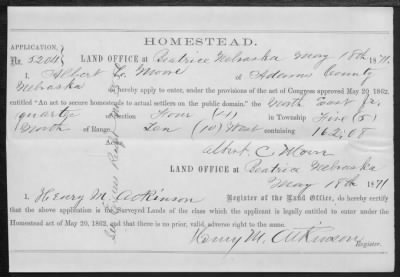 HOMESTEAD.
APPLICATION,
No. 5204
LAND OFFICE at Beatrice Nebraska May 18th 1871.
I, Albert C. Moore of Adams County
Nebraska do hereby apply, under the provisions of the act of Congress approved May 20, 1862,
entitled "An act to secure homesteads to actual settlers on the public domain," the North East qr.
quarter of Section Four (4) in Township Five (5)
North of Range Ten (10) West containing 162.08
Acres
Albert C. Moore
LAND OFFICE at Beatrice Nebraska
May 18th 1871
I, Henry M. Atkinson Register of the Land Office, do hereby certify
that the above application is for Surveyed Lands of the class which the applicant is legally entitled to enter under the
Homestead act of May 20, 1862, and that there is no prior, valid, adverse right to the same.
Henry M. Atkinson
Register.